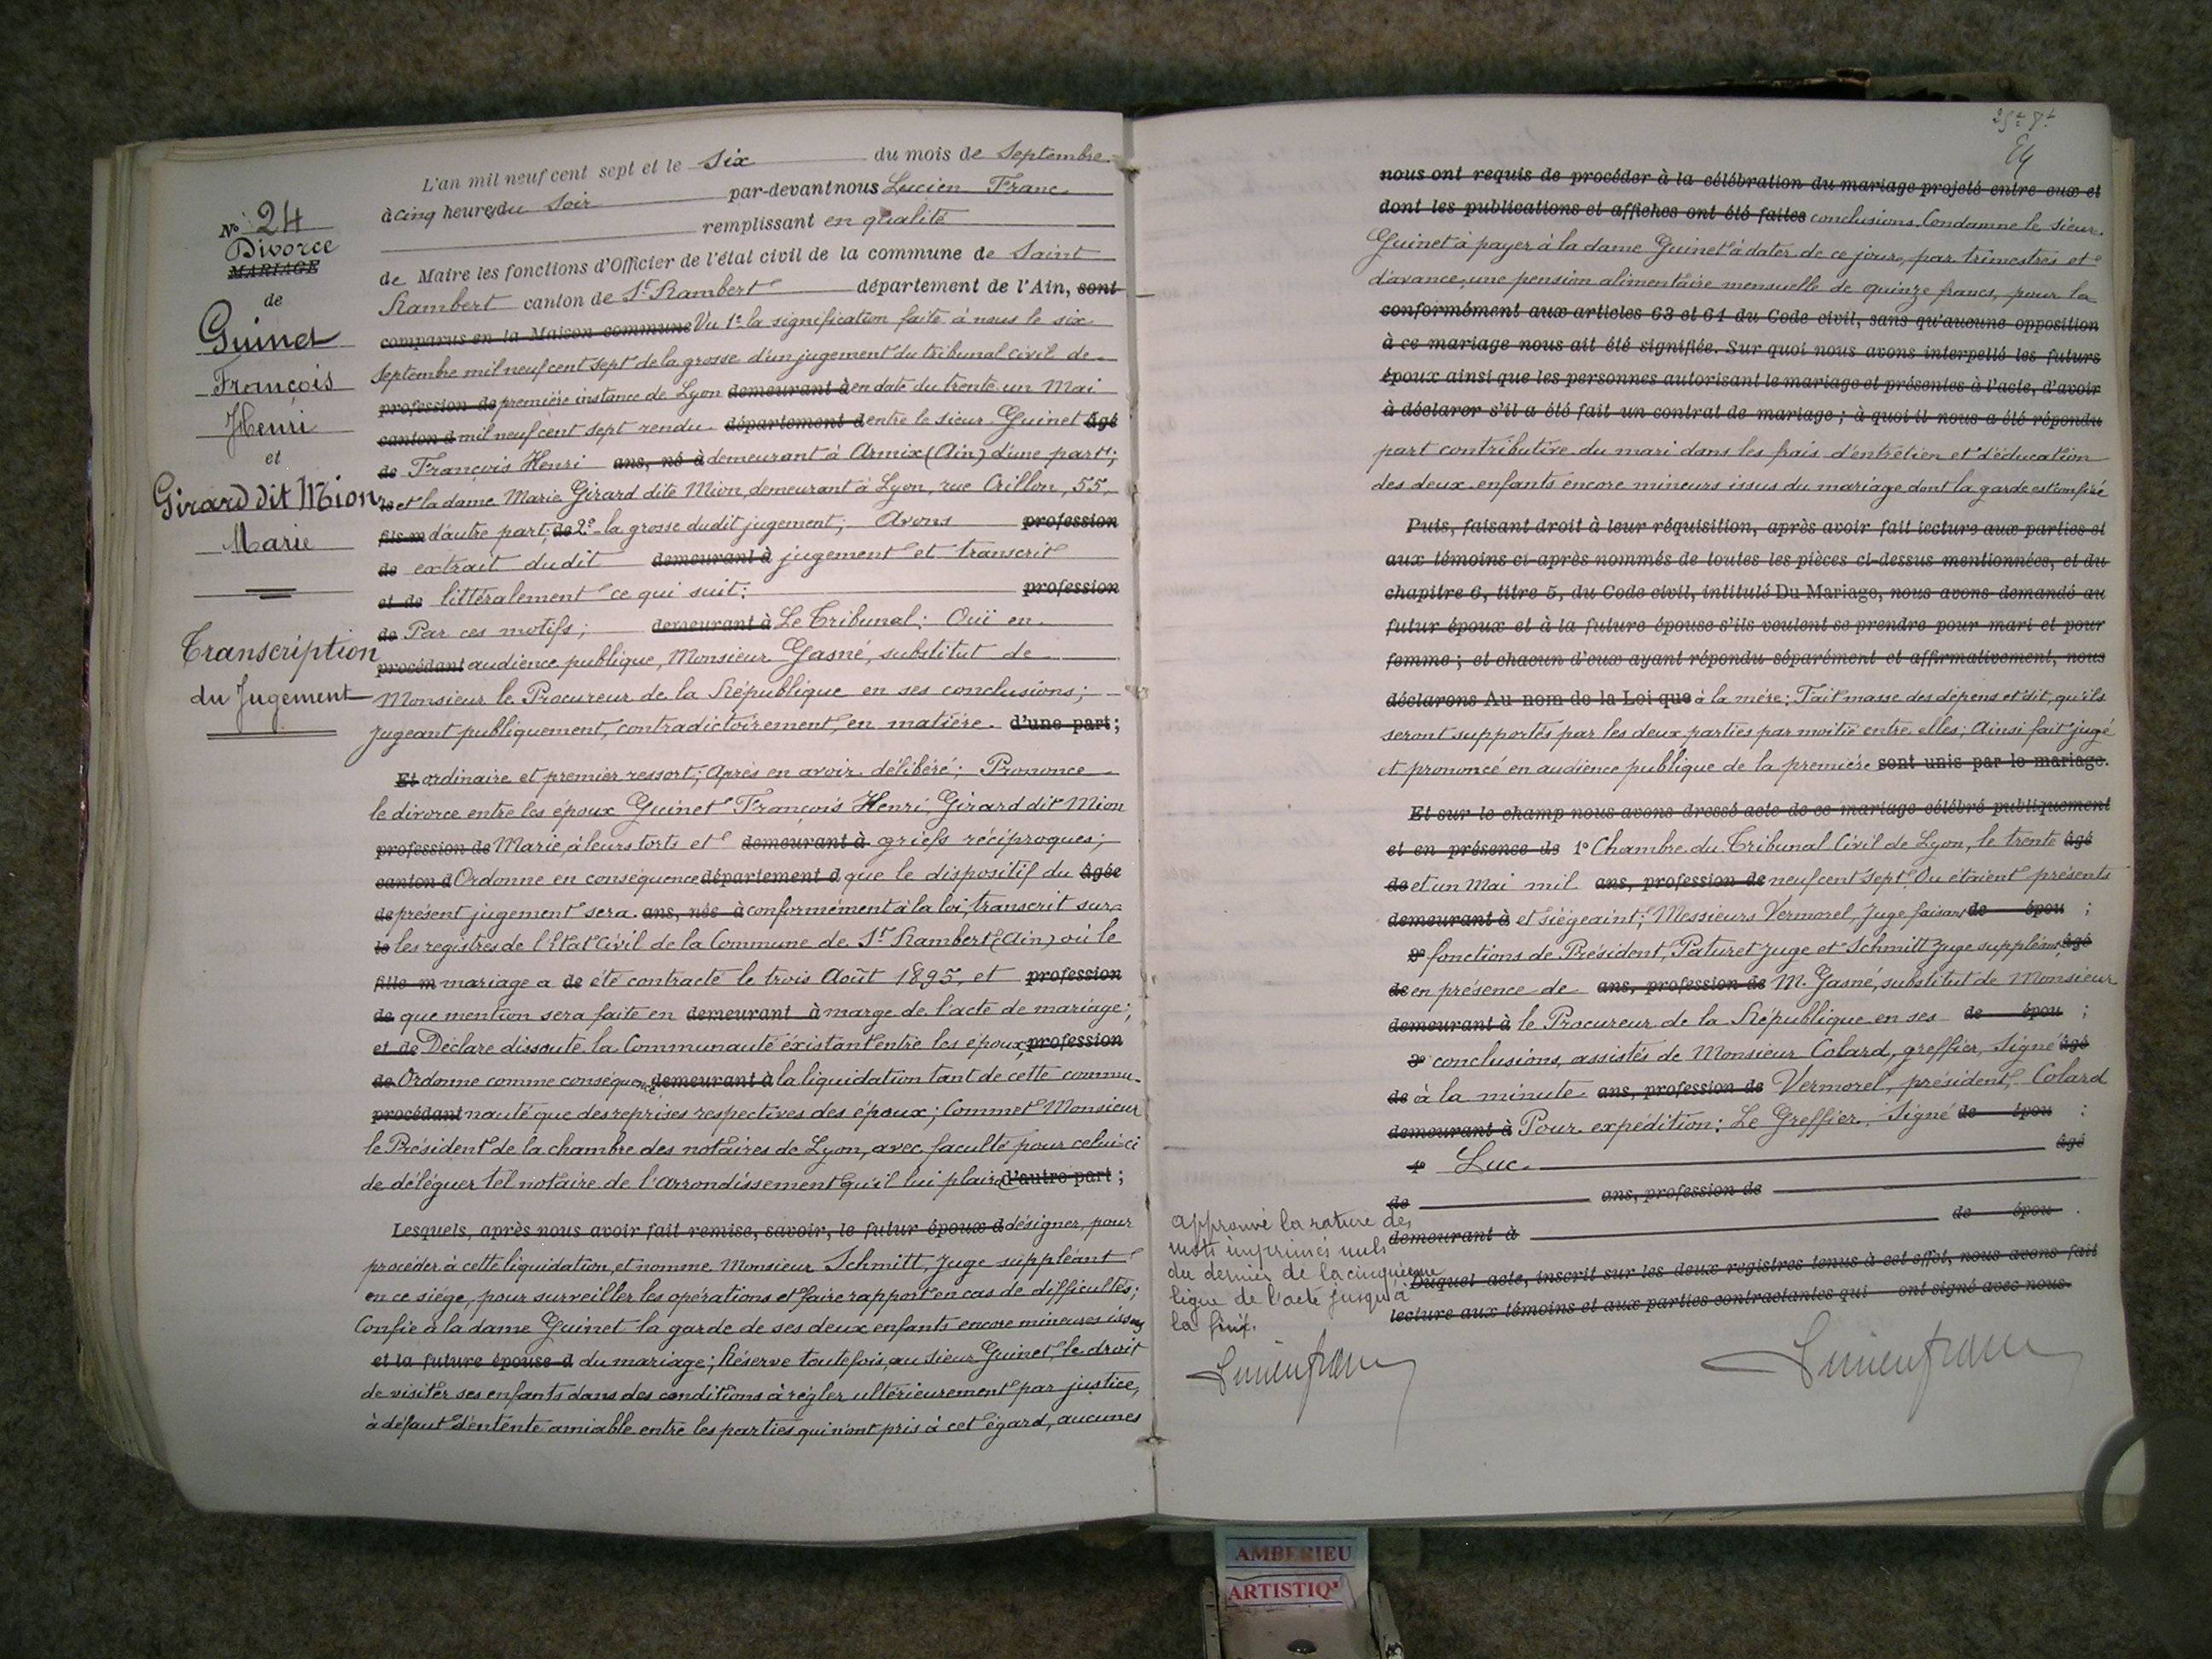 N° 24
Divorce
MARIAGE
de
Guinet
François
Henri
et
Girard dit Mion
Marie
Transcription
du Jugement
L'an mil neuf cent sept et le Six du mois de Septembre
à cinq heures du Soir par-devant nous Lucien Franc
remplissant en qualité
de Maire les fonctions d'Officier de l'état civil de la commune de Saint
Rambert canton de St Rambert département de l'Ain, sont
comparus en la Maison commune Vu 1° la signification faite à nous le six
Septembre mil neuf cent sept de la grosse d'un jugement du tribunal civil de
profession de première instance de Lyon demeurant à en date du trente un Mai
canton d mil neuf cent sept rendu département d entre le sieur Guinet âgé
de François Henri ans, né à demeurant à Armix (Ain) d'une part;
le et la dame Marie Girard dite Mion, demeurant à Lyon, rue Crillon, 55,
fils m d'autre part; de 2° la grosse dudit jugement; Avons profession
de extrait dudit demeurant à jugement et transcrit
et de littéralement ce qui suit: profession
de Par ces motifs; demeurant à Le Tribunal: Ouï en
procédant audience publique, Monsieur Gasné, substitut de
Monsieur le Procureur de la République en ses conclusions;
Jugeant publiquement, contradictoirement, en matière d'une part;
Et ordinaire et premier ressort; Après en avoir délibéré; Prononce
le divorce entre les époux Guinet François Henri, Girard dit Mion
profession de Marie, à leurs torts et demeurant à griefs réciproques;
canton d Ordonne en conséquence département d que le dispositif du âgée
de présent jugement sera ans, née à conformément à la loi, transcrit sur
le les registres de l'Etat Civil de la Commune de St Rambert (Ain) où le
fille m mariage a de été contracté le trois Août 1895, et profession
de que mention sera faite en demeurant à marge de l'acte de mariage;
et de Déclare dissoute la Communauté existant entre les époux, profession
de Ordonne comme conséquence demeurant à la liquidation tant de cette commu-
procédant nauté que des reprises respectives des époux; Commet Monsieur
le Président de la chambre des notaires de Lyon, avec faculté pour celui-ci
de déléguer tel notaire de l'arrondissement qu'il lui plaira d'autre part;
Lesquels, après nous avoir fait remise, savoir, le futur époux d désigner, pour
procéder à cette liquidation, et nomme Monsieur Schmitt, Juge suppléant
en ce siège, pour surveiller les opérations et faire rapport en cas de difficultés;
Confie à la dame Guinet la garde de ses deux enfants encore mineures issus
et la future épouse d du mariage; Réserve toutefois, au sieur Guinet, le droit
de visiter ses enfants dans des conditions à régler ultérieurement par justice,
à défaut d'entente amiable entre les parties qui n'ont pris à cet égard, aucunes
nous ont requis de procéder à la célébration du mariage projeté entre eux et
dont les publications et affiches ont été faites conclusions. Condamne le sieur
Guinet à payer à la dame Guinet à dater de ce jour, par trimestres et
d'avance, une pension alimentaire mensuelle de quinze francs, pour la
conformément aux articles 63 et 64 du Code civil, sans qu'aucune opposition
à ce mariage nous ait été signifiée. Sur quoi nous avons interpellé les futurs
époux ainsi que les personnes autorisant le mariage et présentes à l'acte, d'avoir
à déclarer s'il a été fait un contrat de mariage; à quoi il nous a été répondu
part contributive du mari dans les frais d'entretien et d'éducation
des deux enfants encore mineurs issus du mariage dont la garde est confiée
Puis, faisant droit à leur réquisition, après avoir fait lecture aux parties et
aux témoins ci-après nommés de toutes les pièces ci-dessus mentionnées, et du
chapitre 6, titre 5, du Code civil, intitulé Du Mariage, nous avons demandé au
futur époux et à la future épouse s'ils veulent se prendre pour mari et pour
femme; et chacun d'eux ayant répondu séparément et affirmativement, nous
déclarons Au nom de la Loi que à la mère; Fait masse des dépens et dit, qu'ils
seront supportés par les deux parties par moitié entre elles; Ainsi fait jugé
et prononcé en audience publique de la première sont unis par le mariage.
Et sur le champ nous avons dressé acte de ce mariage célébré publiquement
et en présence de 1° Chambre du Tribunal Civil de Lyon, le trente âgé
de et un Mai mil ans, profession de neuf cent sept. Ou étaient présents
demeurant à et siégeaint; Messieurs Vermorel, Juge faisant de épou ;
2° fonctions de Président, Paturet Juge et Schmitt Juge suppléant, âgé
de en présence de ans, profession de M. Gasné, substitut de Monsieur
demeurant à le Procureur de la République en ses de épou ;
3° conclusions, assistés de Monsieur Colard, greffier, Signé âgé
de à la minute ans, profession de Vermorel, président, Colard
demeurant à Pour expédition: Le Greffier, Signé de épou ;
4° Luc. âgé
de ans, profession de
demeurant à de épou .
Duquel acte, inscrit sur les deux registres tenus à cet effet, nous avons fait
lecture aux témoins et aux parties contractantes qui ont signé avec nous.
approuvé la rature des
mots imprimés nuls
du dernier de la cinquième
ligne de l'acte jusqu'à
la fin.
Lucien Franc
Lucien Franc
AMBERIEU
ARTISTIQ